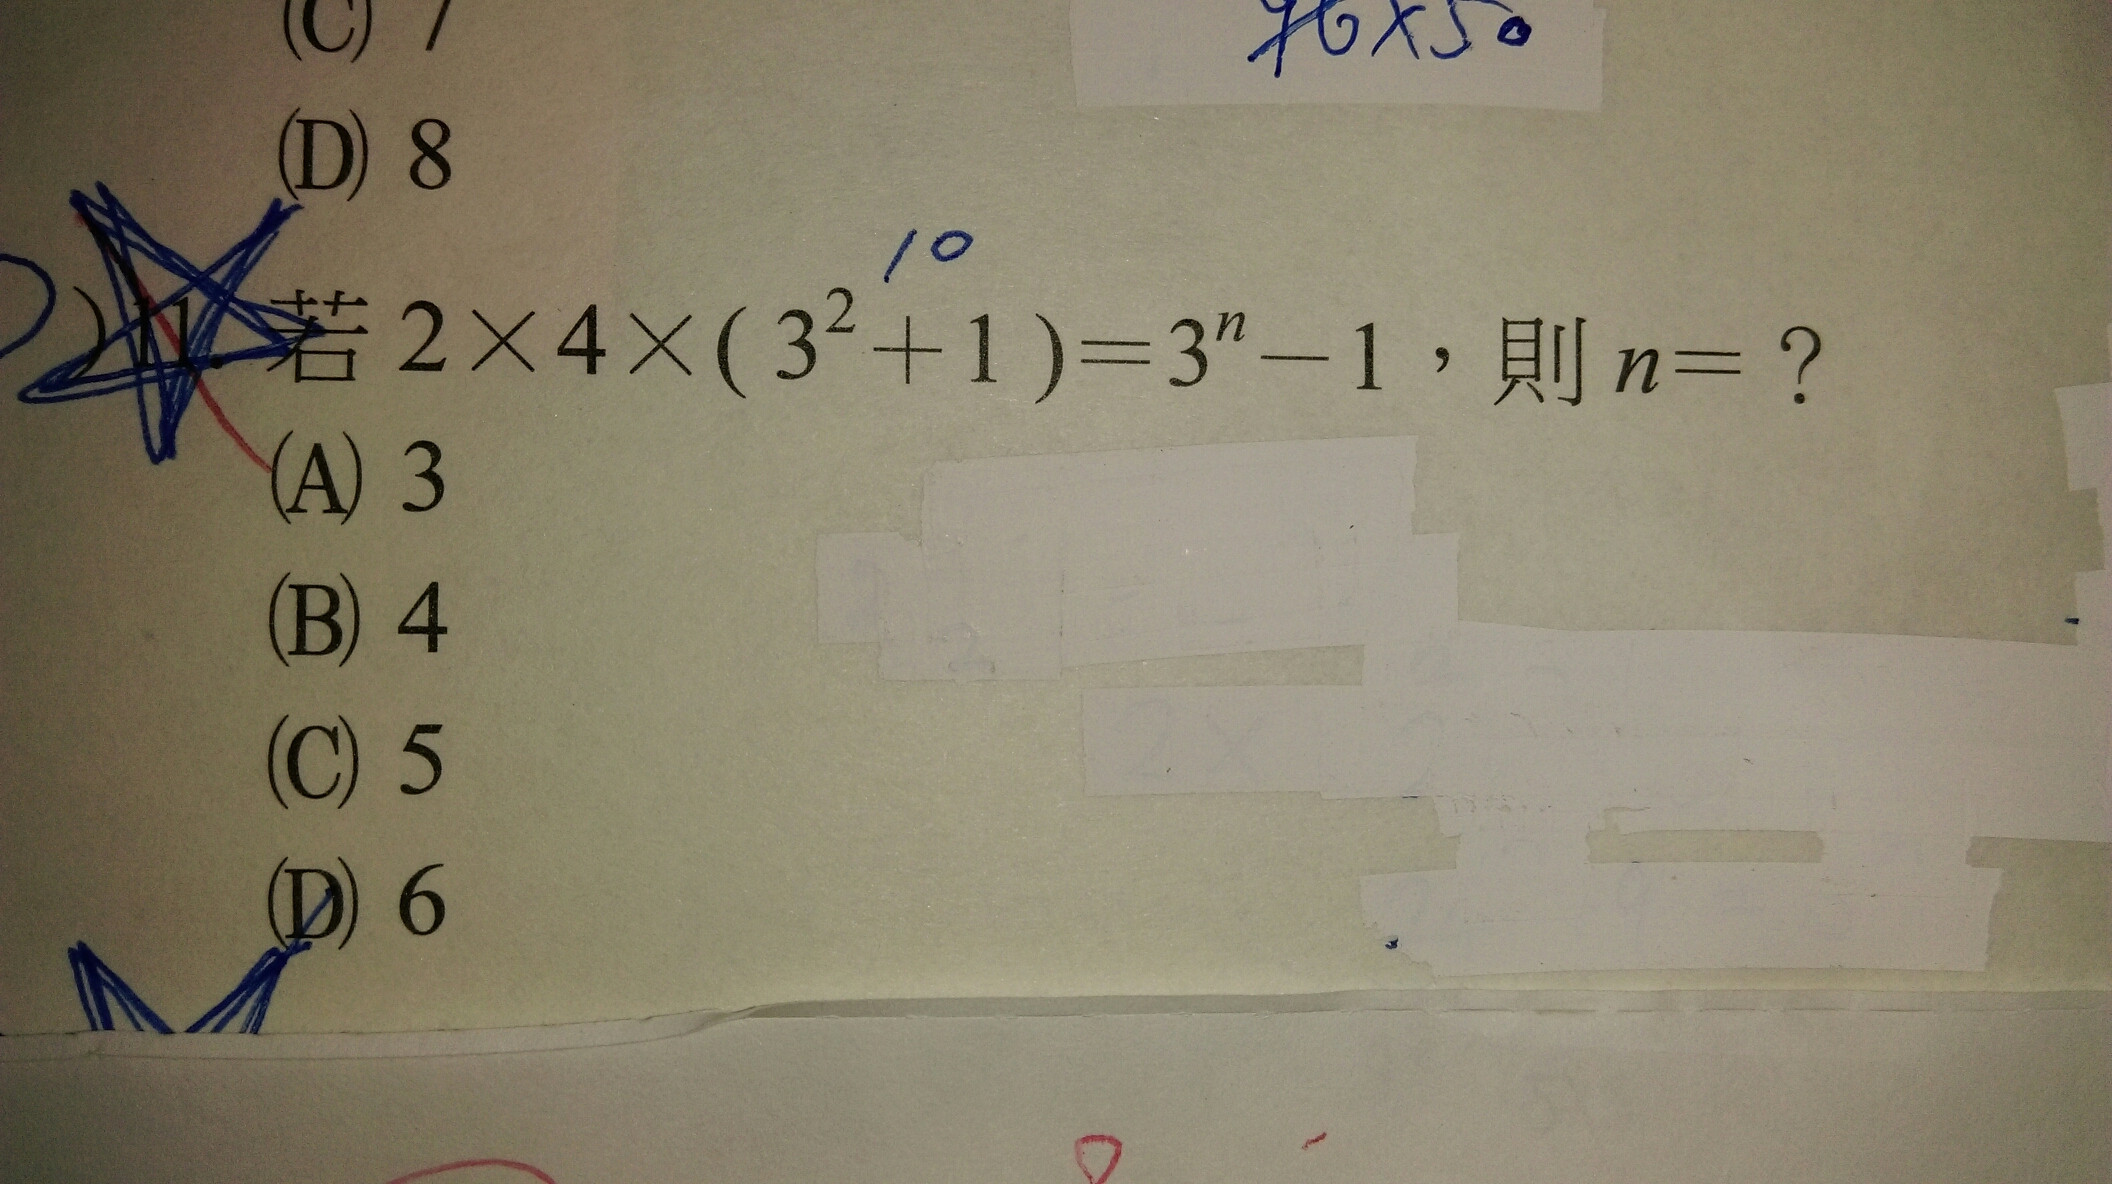 (C) 7
76×50
(D) 8
10
)11. 若 2×4×( 3²+1 )=3ⁿ−1，則 n=？
(A) 3
(B) 4
(C) 5
(D) 6